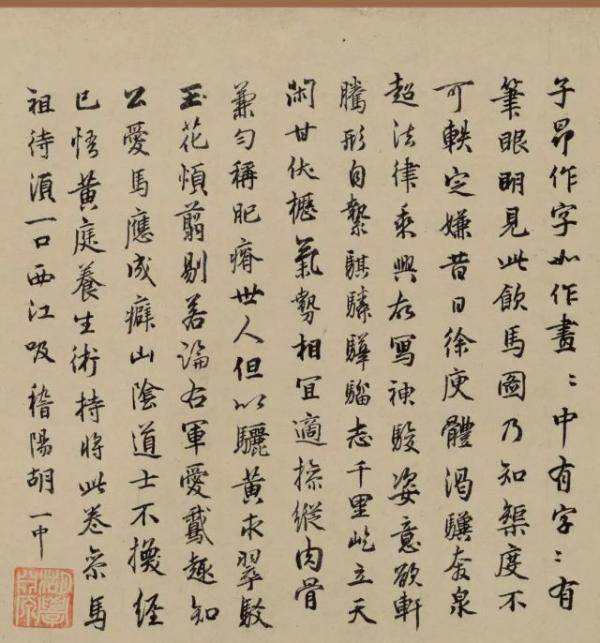 子昂作字如作畫〻中有字〻有
筆眼明見此飲馬圖乃知榘度不
可軼定嫌昔日徐庾體渴驥奔泉
超法律乘興寫神駿姿意欲軒
騰形自縶騏驎驊騮志千里屹立天
閑甘伏櫪氣勢相宜適操縱肉骨
兼勻稱肥瘠世人但以驪黃求翠駮
玉花煩翦剔若論右軍愛鵞趣知
公愛馬應成癖山陰道士不換經
已悟黃庭養生術持將此卷參馬
祖待須一口西江吸稽陽胡一中